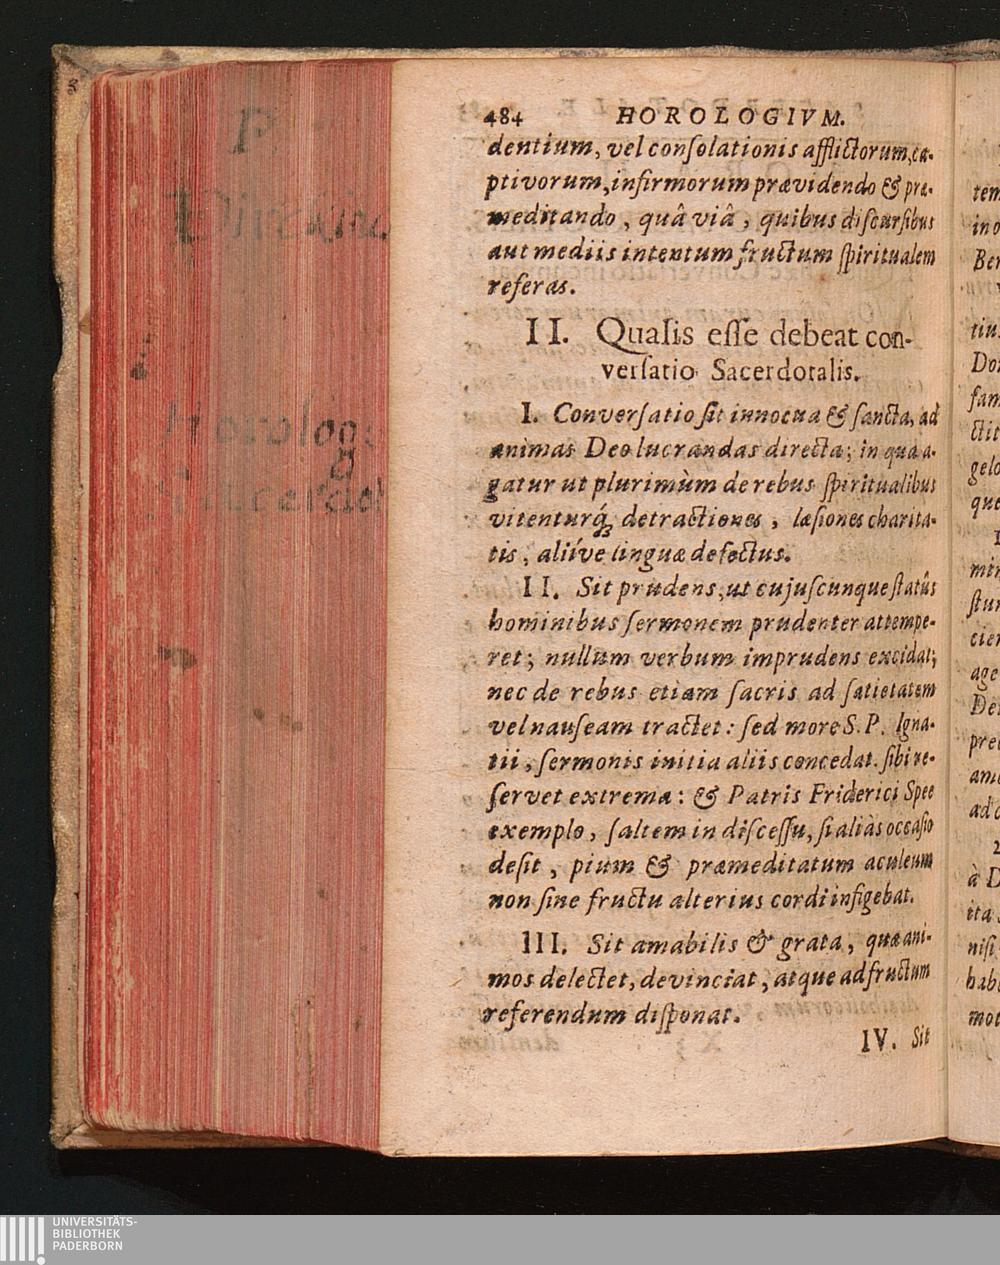 484 HOROLOGIVM.
dentium, vel conſolationis afflictorum, ca-
ptivorum, infirmorum prævidendo & præ-
meditando, quâ viâ, quibus diſcurſibus
aut mediis intentum fructum ſpiritualem
referas.
II. Qualis eſſe debeat con-
verſatio Sacerdotalis.
I. Converſatio ſit innocua & ſancta, ad
animas Deo lucrandas directa; in qua a-
gatur ut plurimùm de rebus ſpiritualibus
vitenturq́; detractiones, læſiones charita-
tis, aliíve linguæ defectus.
II. Sit prudens, ut cujuſcunque ſtatûs
hominibus ſermonem prudenter attempe-
ret; nullum verbum imprudens excidat;
nec de rebus etiam ſacris ad ſatietatem
vel nauſeam tractet: ſed more S. P. Igna-
tii, ſermonis initia aliis concedat. ſibi re-
ſervet extrema: & Patris Friderici Spee
exemplo, ſaltem in diſceſſu, ſi aliàs occaſio
deſit, pium & præmeditatum aculeum
non ſine fructu alterius cordi infigebat.
III. Sit amabilis & grata, quæ ani-
mos delectet, devinciat, atque ad fructum
referendum diſponat.
IV. Sit
P.
UNIVERSITÄTS-
BIBLIOTHEK
PADERBORN